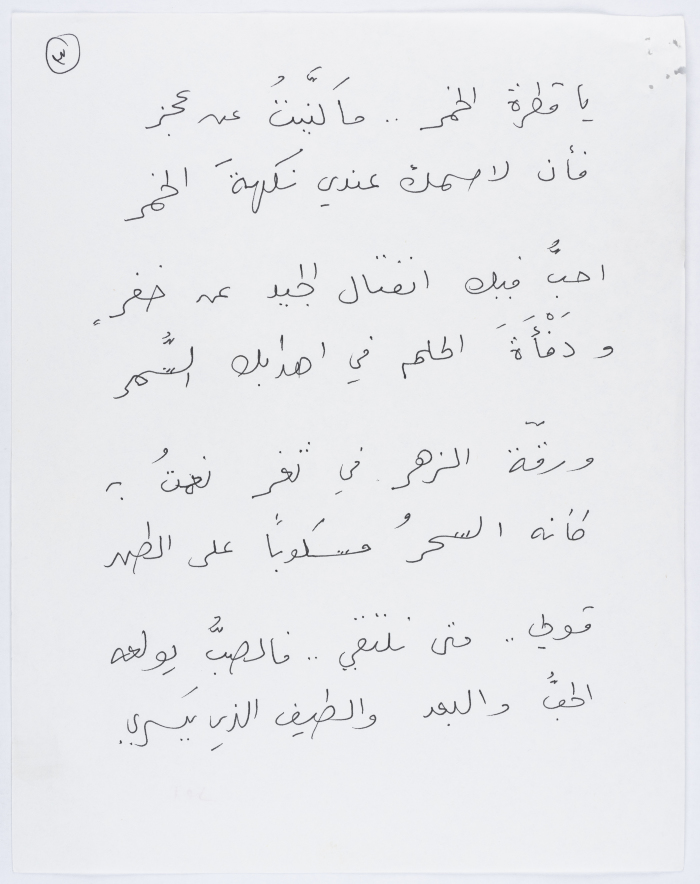 ٣
يا قطرة الخمر .. ما كنَّيتُ عن عجز
فأن لاسمك عندي نكهةَ الخمر
احبُّ فيك انفتال الجيد عن خفرٍ
و دَفْأَةَ الحلم في اهدابك السُّمر
ورقّة الزهر في ثغر نعمتُ به
كأنه السحرُ مسكوباً على الطهر
قولي .. متى نلتقي .. فالصبُّ يولعه
الحبُّ والبعد والطيف الذي يَسري..